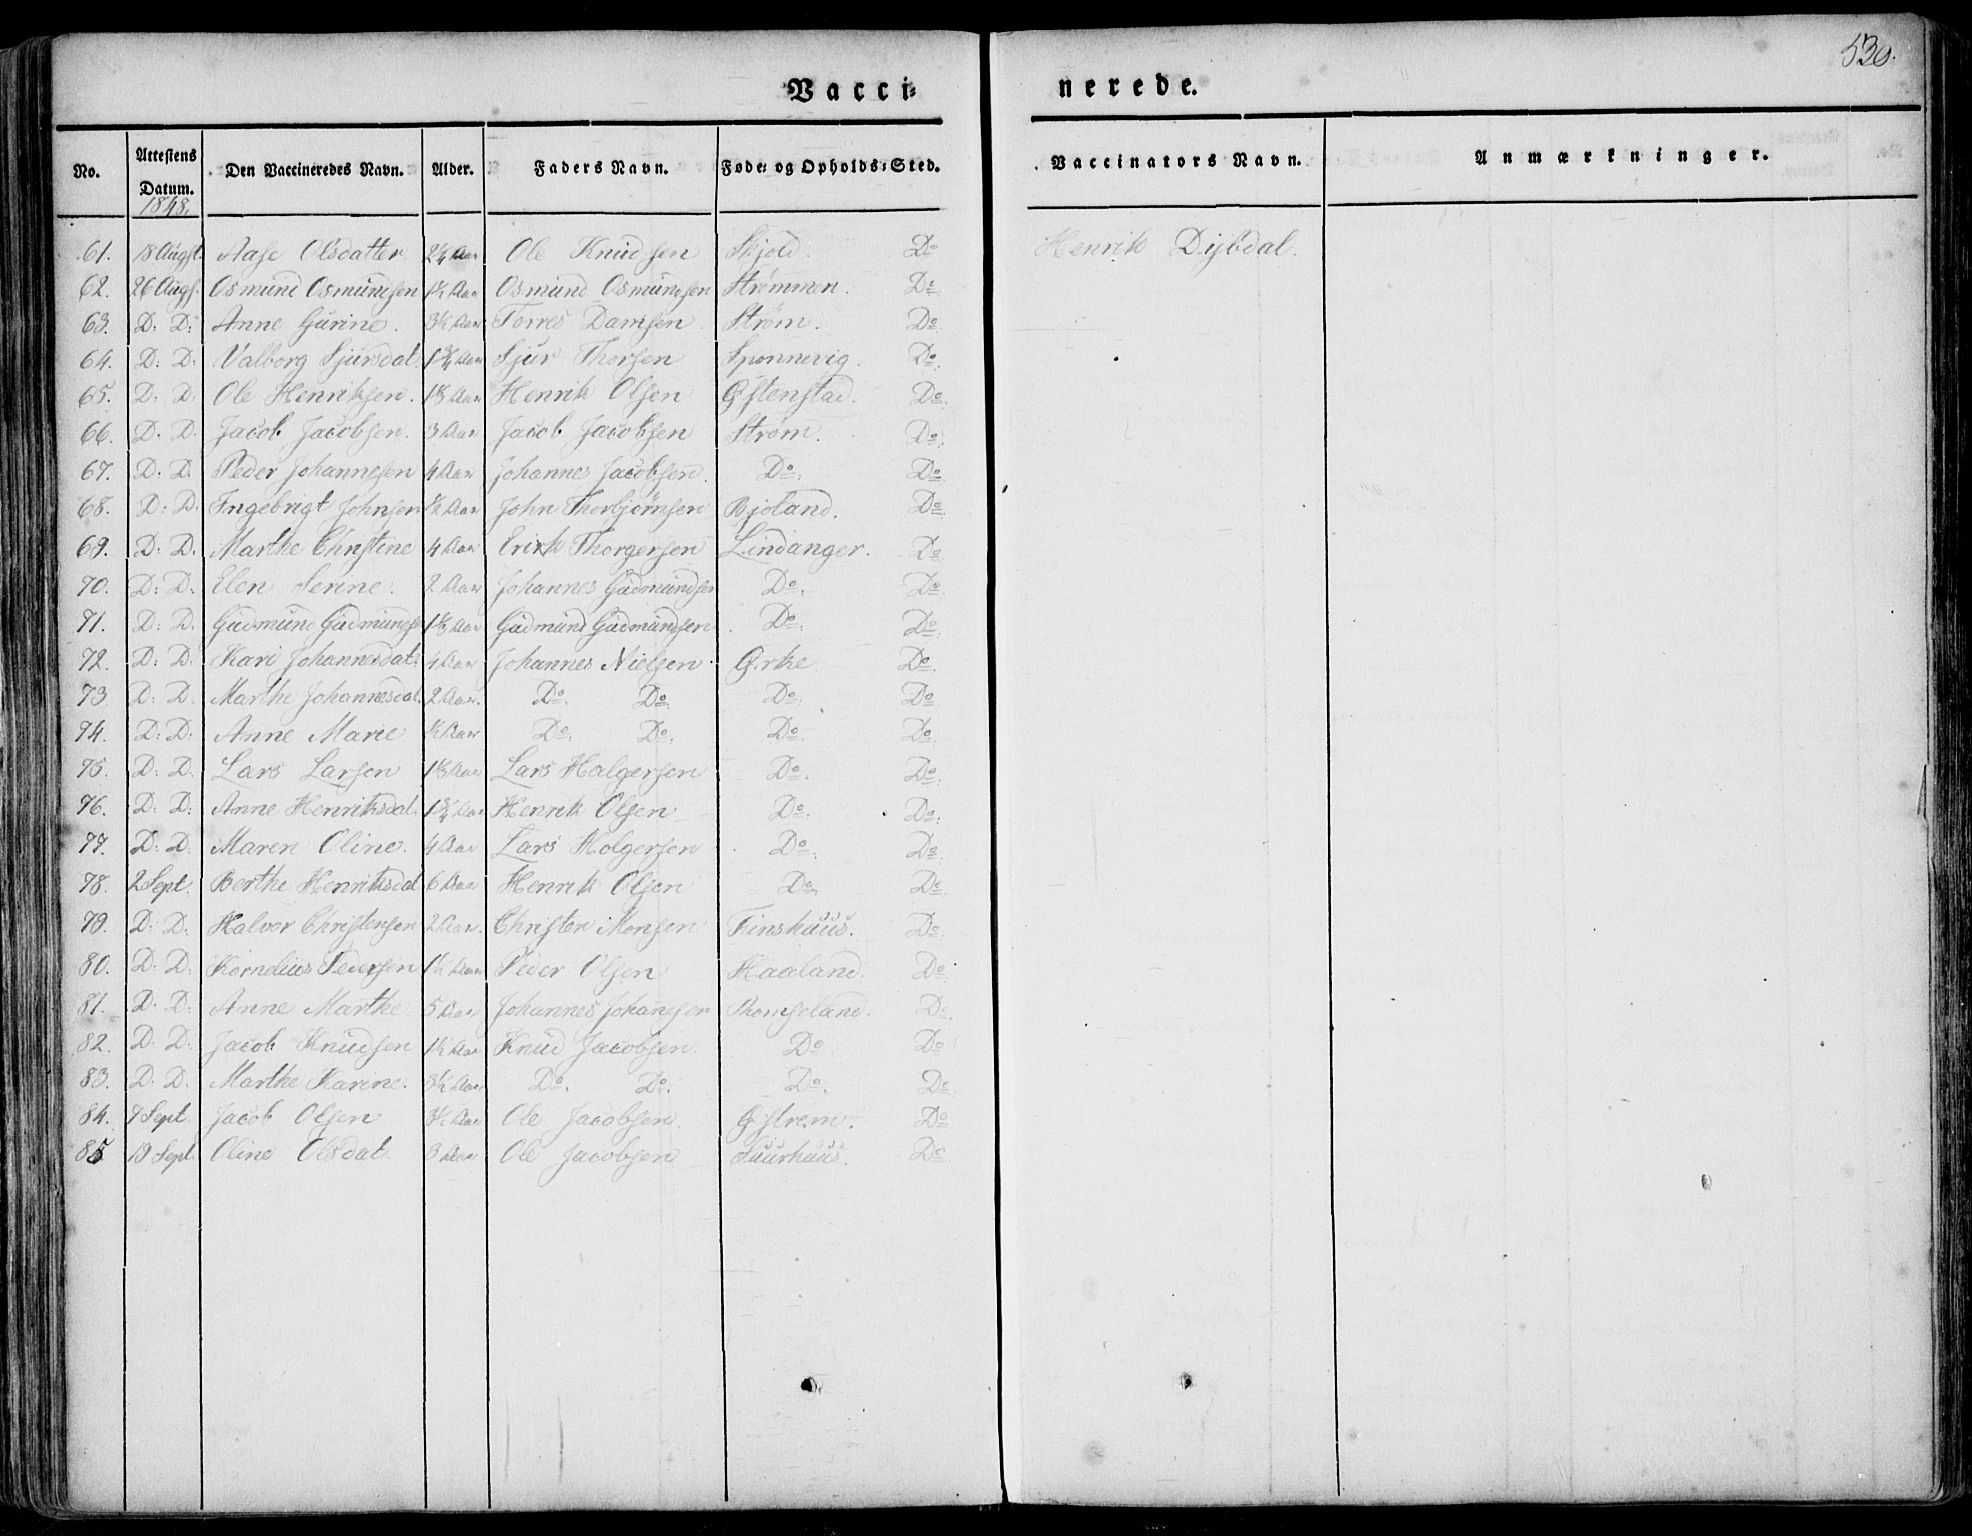 530.
Vacci= nerede.
No. Attestens Datum. Den Vaccineredes Navn. Alder. Faders Navn. Føde= og Opholds=Sted. Vaccinators Navn. Anmærkninger.
1848.
61. 18 Augst. Aase Olsdatter 2¼ Aar Ole Knudsen Skjold. Do Henrik Dybdal.
62. 26 Augs. Osmund Osmundsen 1½ Aar Osmund Osmundsen Strømmen. Do
63. D: D: Anne Gurine. 3½ Aar Torres Danisen Strøm. Do
64. D: D: Valborg Sjursdat. 1¾ Aar Sjur Thorsen Spønnevig. Do
65. D: D: Ole Henriksen. Aar Henrik Olsen Østenstad. Do
66. D: D. Jacob Jacobsen. 3 Aar Jacob Jacobsen Strøm. Do
67. D: D. Peder Johannesen 4 Aar Johannes Jacobsen. Do Do
68. D: D. Ingebrigt Johnsen ½ Aar John Thorbjørnsen Bjoland. Do
69. D: D. Marthe Christine 4 Aar Erick Thorgersen Lindanger. Do
70. D: D. Elen Serine. 2 Aar Johannes Gudmundsen Do Do
71. D: D. Gudmund Gudmundsen Aar Gudmund Gudmundsen Do Do
72. D: D. Kari Johannesdat. 4 Aar Johannes Nielsen Ørke Do
73 D: D. Marthe Johannesdat. 2 Aar. Do. Do. Do. Do
74. D: D: Anne Marie ½ Aar Do. Do. Do. Do
75. D: D. Lars Larsen Aar Lars Halgersen Do. Do
76. D: D: Anne Henriksdat. 1¾ Aar Henrik Olsen Do. Do
77. D: D: Maren Oline. 4 Aar Lars Holgersen Do. Do
78. 2 Sept. Berthe Henriksdat 6 Aar Henrik Olsen Do. Do
79. D: D: Halvor Christensen 2 Aar. Christen Monsen Finshuus. Do
80. D: D: Kornelius Pedersen 1½ Aar Peder Olsen Haaland. Do
81. D: D: Anne Marthe 5 Aar Johannes Johannesen Do.
82. D: D: Jacob Knudsen 1½ Aar Knud Jacobsen. Do Do
83. D: D. Marthe Karine. 3½ Aar Do. Do. Do. Do
84. 9 Sept Jacob Olsen 3½ Aar Ole Jacobsen. Østrem. Do
85 19 Sept. Oline Olsdat. 3 Aar Ole Jacobsen Do